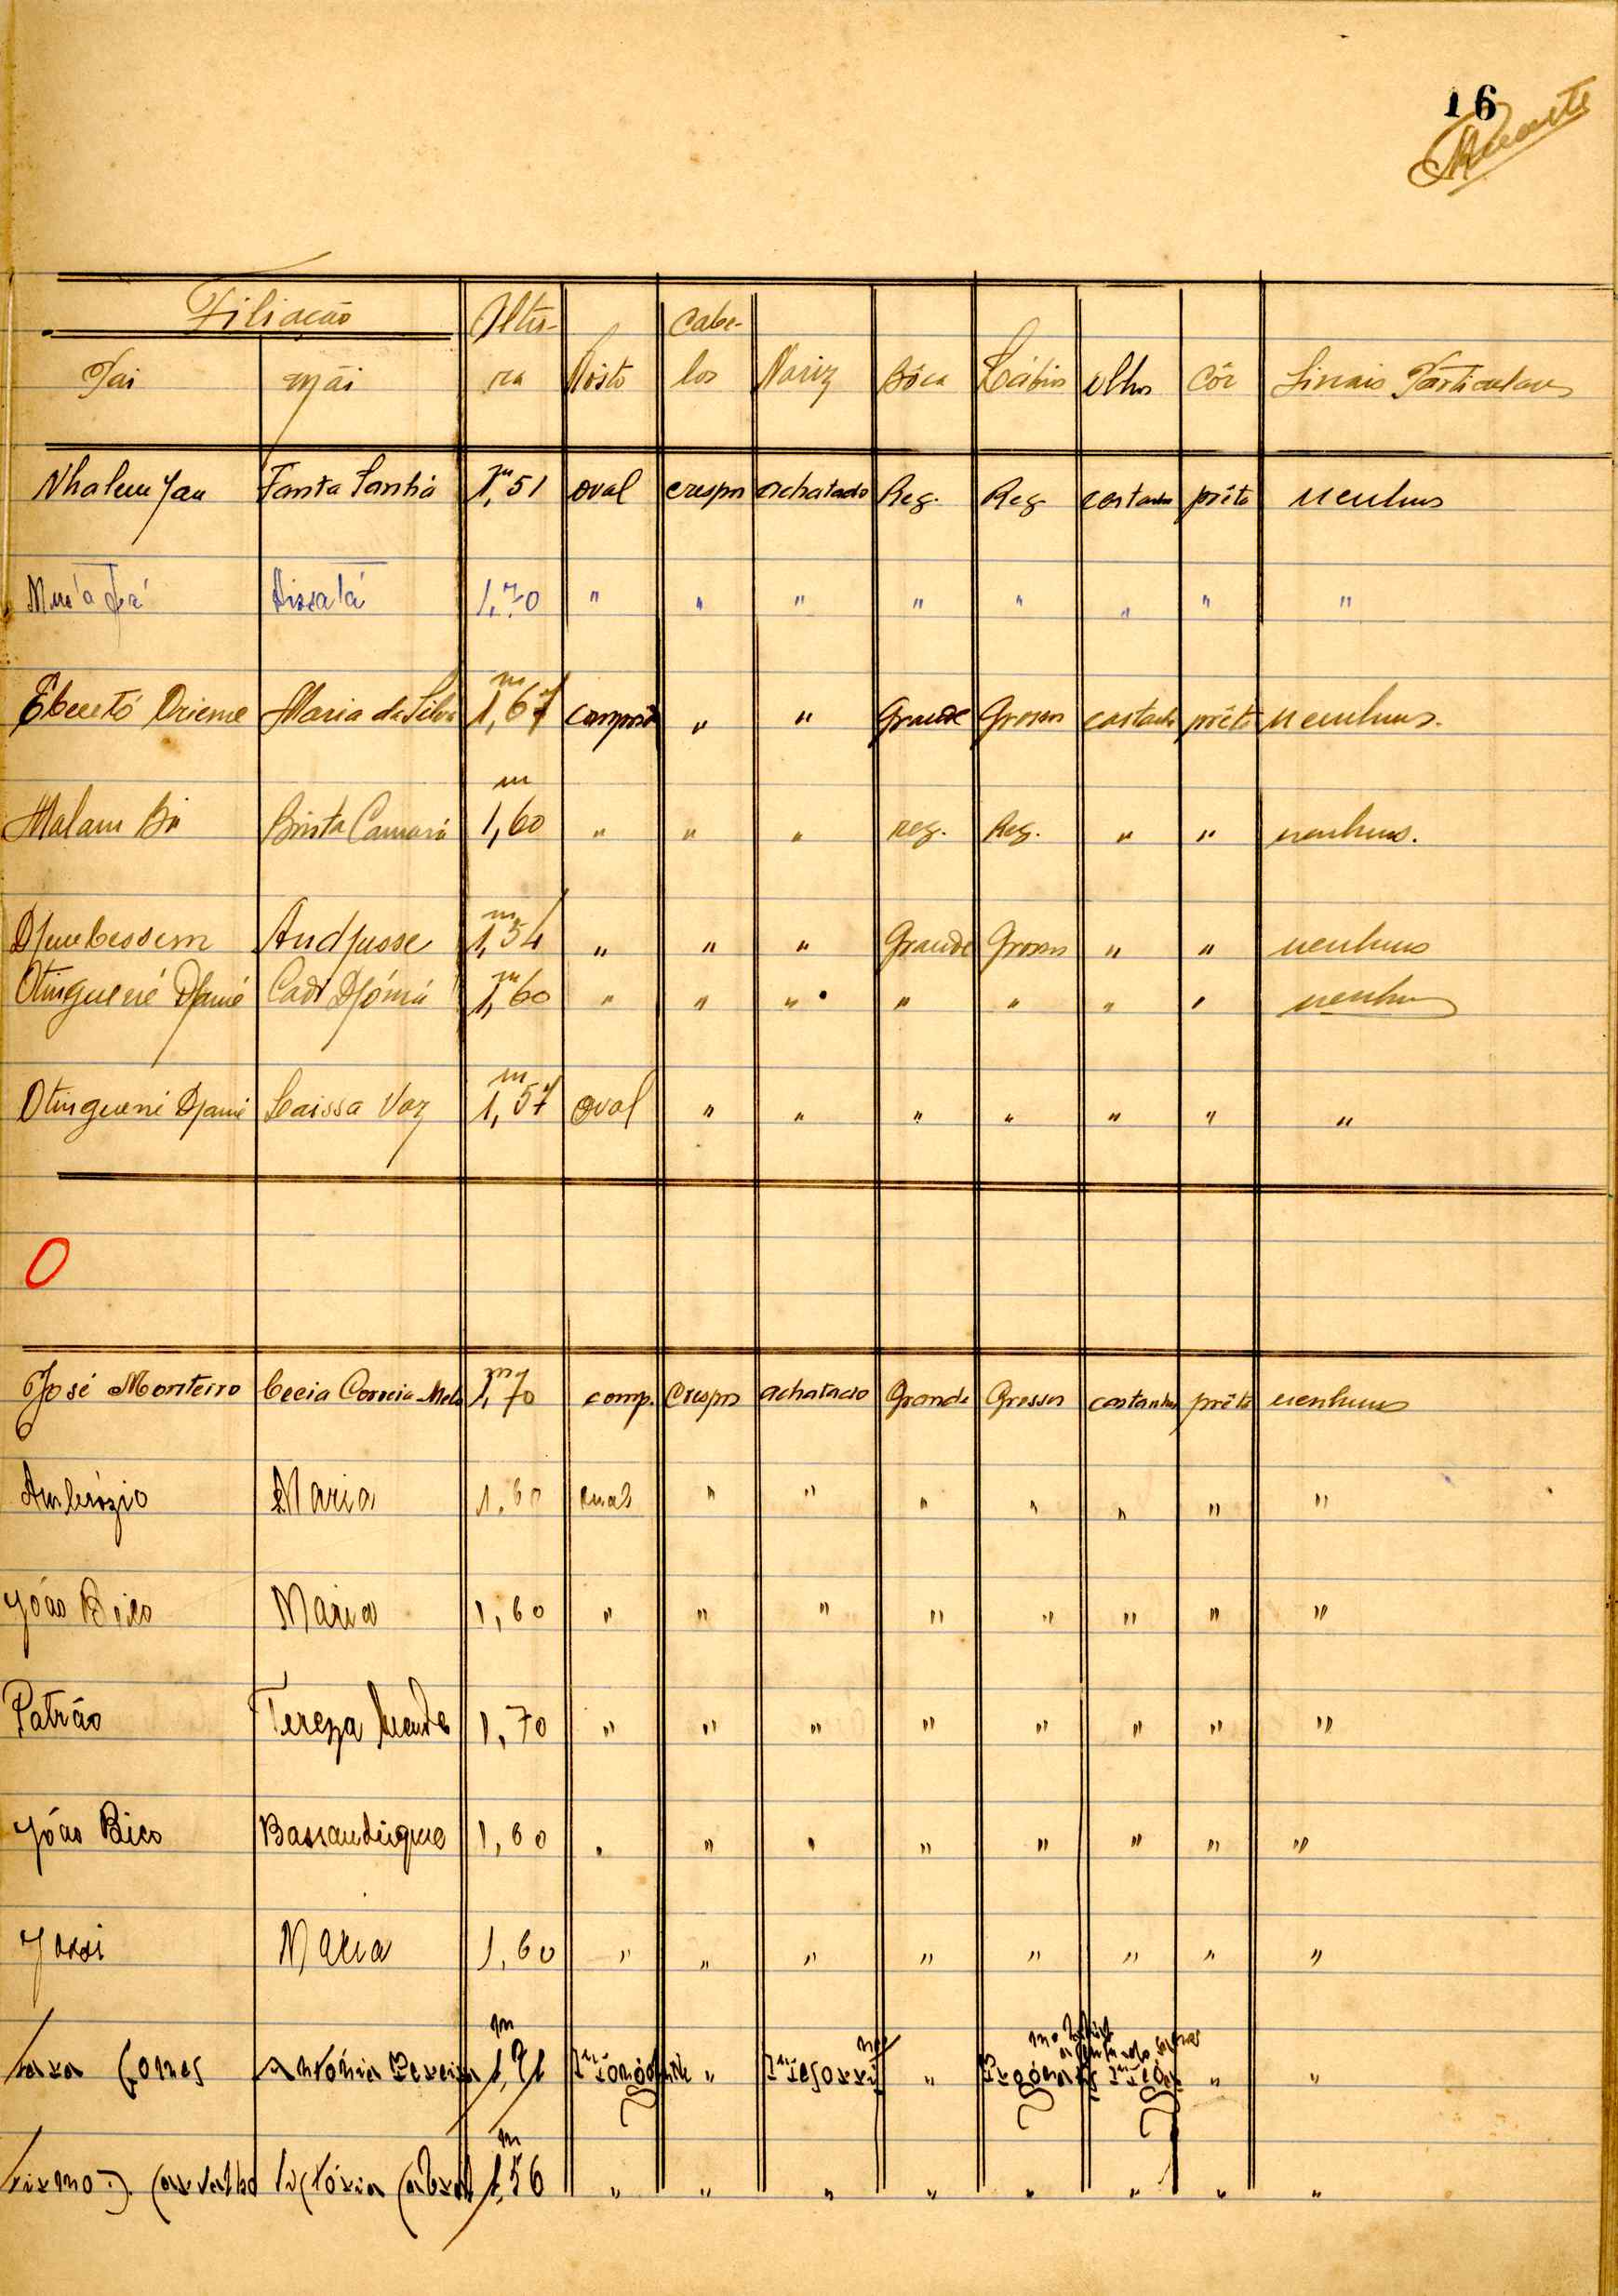 16
Filiação Altu- Cabe-
Pai Mãi ra Rosto los Nariz Bôca Lábios olhos Côr Sinais Particulares
Nhalem Jau Fanta Sanhá 1,51 m oval crespos achatado Reg. Reg. castanhos prêta nenhuns
Aissatá 1,70 " " " " " " " "
Maria da Silva 1,67 m comprido " " Grande Grossos castanhos prêta nenhuns.
Malam Bá Binta Camará 1,60 m " " " reg. Reg. " " nenhuns.
Djembessem Andjusse 1,54 m " " " Grande Grossos " " nenhuns
Otinguené Djamé Cadi Djómá 1,60 m " " " " " " " nenhuns
Otinguené Djamé Laissa Vaz 1,57 m oval " " " " " " "
O
José Monteiro Correia Melo 1,70 m comp. crespos achatado Grande Grossos castanhos prêta nenhuns
Ambrózio Maria 1,60 oval " " " " " " "
João Bico Maria 1,60 " " " " " " " "
Patrão Tereza 1,70 " " " " " " " "
João Bico 1,60 " " " " " " " "
Maria 1,60 " " " " " " " "
Gomes António Pereira 1,71 m " " " "
Carvalho Victória Cabral 1,56 m " " " " " " " "